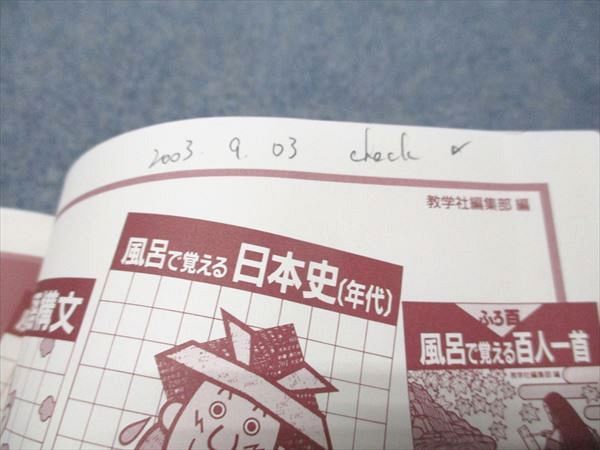 2003. 9. 03 check ✓
教学社編集部 編
風呂で覚える 日本史(年代)
構文
ふろ百
風呂で覚える百人一首
教学社編集部 編